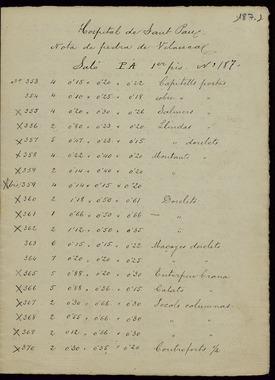 187.
Hospital de Sant Pau
Nota de pedra de Vilaseca
Saló P.A 1er pis. Nº 187-
Nº 353 4 0'15 × 0'20 × 0'22 Capitells portes
354 4 0'10 × 0'25 × 0'18
× 355 4 0'20 × 0'30 × 0'26
× 356 2 0'80 × 0'23 × 0'20 Llindas "
× 357 5 0'47 × 0'23 × 0'15 " dovelets
× 358 4 0'22 × 0'40 × 0'20 Montants "
× 359 2 0'14 × 0'40 × 0'20 "
× bis 359 4 0'14 × 0'15 × 0'20
× 360 2 1'18 × 0'50 × 0'61 Dovelets
× 361 1 0'66 × 0'50 × 0'66 — "
× 362 2 1'12 × 0'50 × 0'35 "
363 6 0'15 × 0'15 × 0'22 dovelets
364 7 0'20 × 0'20 × 0'25 " "
× 365 5 0'88 × 0'20 × 0'30
× 366 5 0'88 × 0'36 × 0'15 Calats "
× 367 2 0'30 × 0'66 × 0'30 Socols columnas
× 368 2 0'55 × 0'66 × 0'30 " "
× 369 2 0'12 × 0'66 × 0'30 " "
× 370 2 0'30 × 0'35 × 0'20 Contraforts